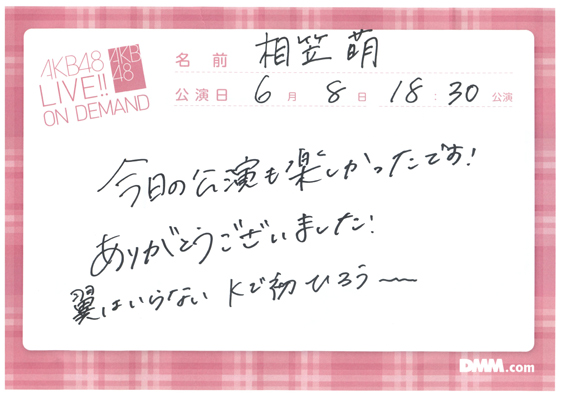 AKB48
LIVE!!
ON DEMAND
AKB
48
名前 相笠萌
公演日 6月 8日 18:30 公演
今日の公演も楽しかったです!
ありがとうございました!
翼はいらない Kで初ひろう〜
DMM.com